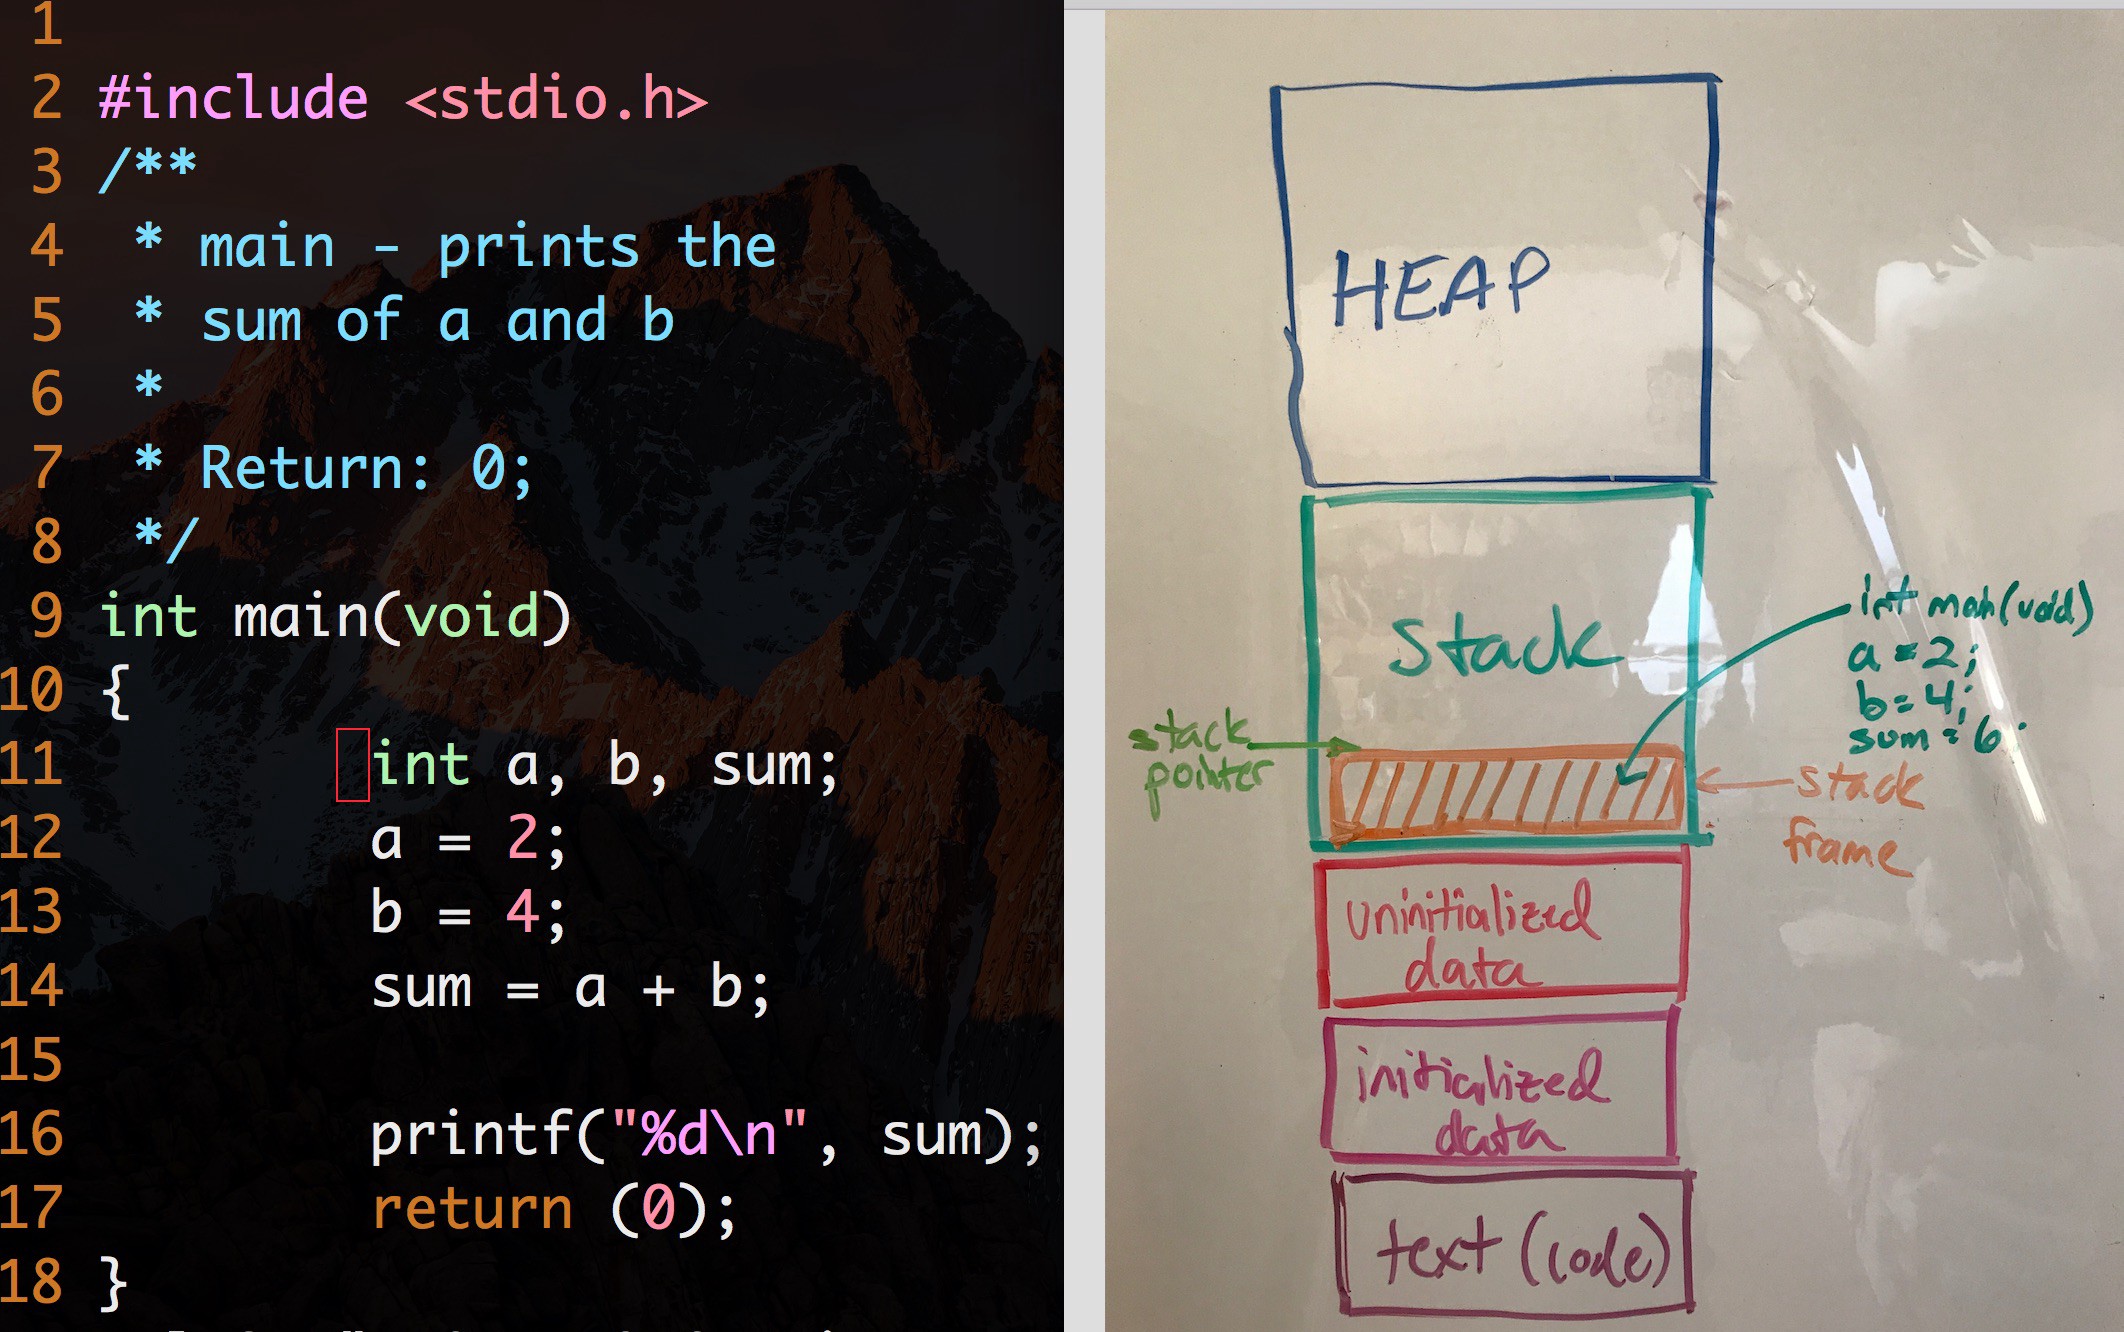 1
2 #include <stdio.h>
3 /**
4  * main - prints the
5  * sum of a and b
6  *
7  * Return: 0;
8  */
9 int main(void)
10 {
11         int a, b, sum;
12         a = 2;
13         b = 4;
14         sum = a + b;
15
16         printf("%d\n", sum);
17         return (0);
18 }
HEAP
Stack
int main(void)
a = 2;
b = 4;
sum = 6;
stack
pointer
stack
frame
uninitialized
data
initialized
data
text (code)